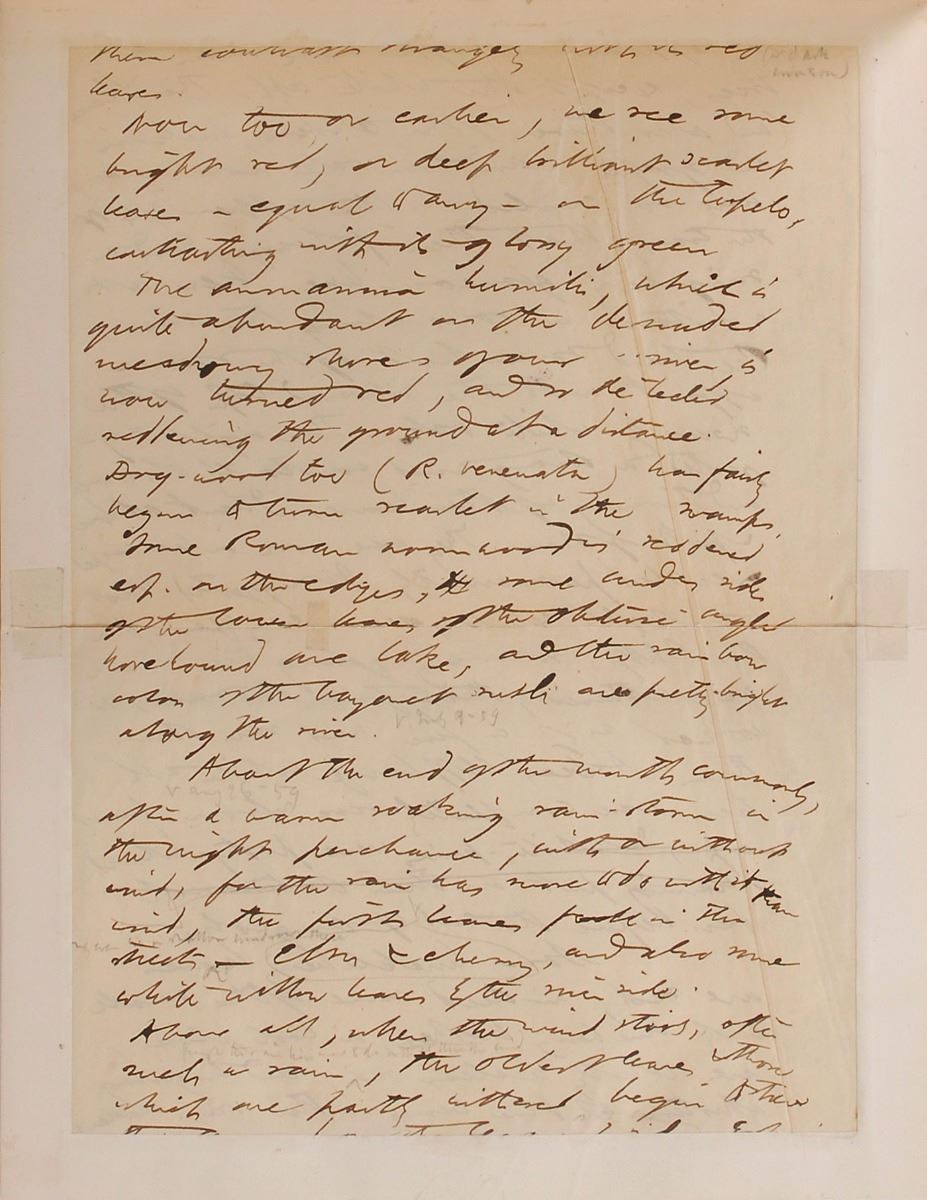 them contrast strangely with its red
leaves.
Now too, or earlier, we see some
bright red, or deep brilliant scarlet
leaves – equal to any – on the tupelo,
contrasting with its glossy green
The ammannia humilis, which is
quite abundant on the denuded
meadowy shores of our river, is
now turned red, and so detected
reddening the ground at a distance.
Dog-wood too (R. venenata) has fairly
begun to turn scarlet in the swamps.
Some Roman wormwood is reddened
esp. on the edges, some under side
of the lower leaves of the obtuse angled
horehound are lake, and the rainbow
colors of the bayonet rush are pretty bright
V July 9-59
along the river.
About the end of the month commonly,
V aug 26-59
after a warm soaking rain-storm in
the night perchance, with or without
wind, for the rain has more to do with it than
wind, the first leaves fall in the
streets – Elm & cherry, and also some
white willow leaves by the river side.
Above all, when the wind stirs, after
such a rain, the oldest leaves & those
which are partly withered begin to